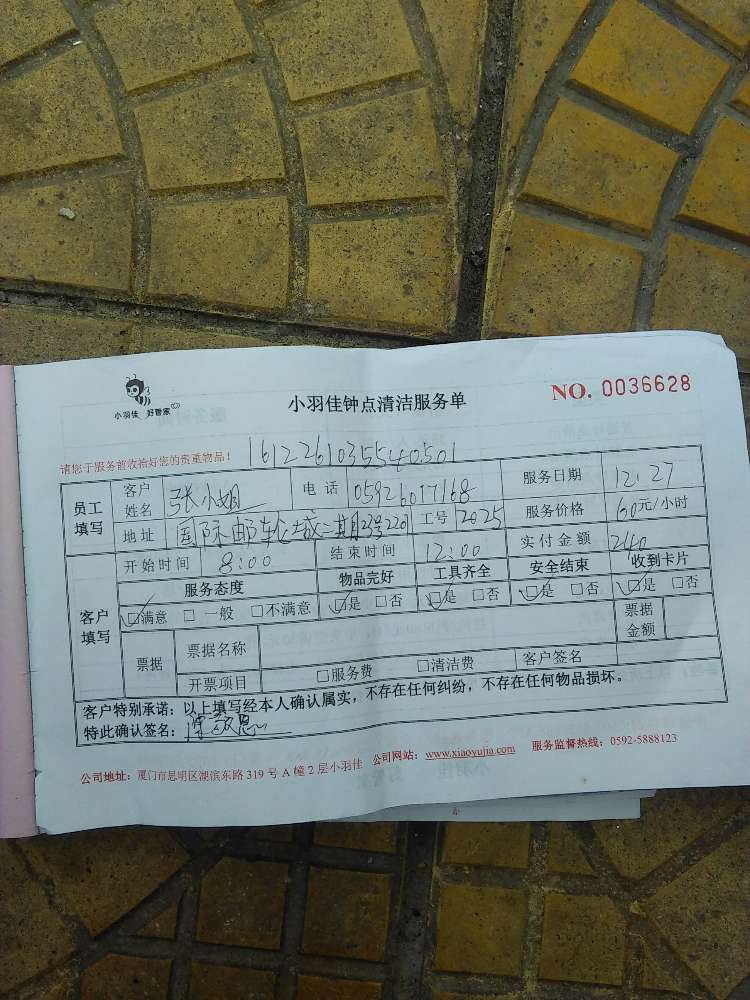 小羽佳 好管家
小羽佳钟点清洁服务单
NO. 0036628
请您于服务前收拾好您的贵重物品!
16122610355540501
员工填写 客户姓名 张小姐 电话 05926017168 服务日期 12.27
地址 国际邮轮城二期23号2201 工号 2025 服务价格 60元/小时
客户填写 开始时间 8:00 结束时间 12:00 实付金额 240
服务态度 物品完好 工具齐全 安全结束 收到卡片
☑满意 □一般 □不满意 ☑是 □否 ☑是 □否 ☑是 □否 ☑是 □否
票据 票据名称 票据金额
开票项目 □服务费 □清洁费 客户签名
客户特别承诺:以上填写经本人确认属实,不存在任何纠纷,不存在任何物品损坏。
特此确认签名:
公司地址:厦门市思明区湖滨东路319号A幢2层小羽佳 公司网站:www.xiaoyujia.com 服务监督热线:0592-5888123